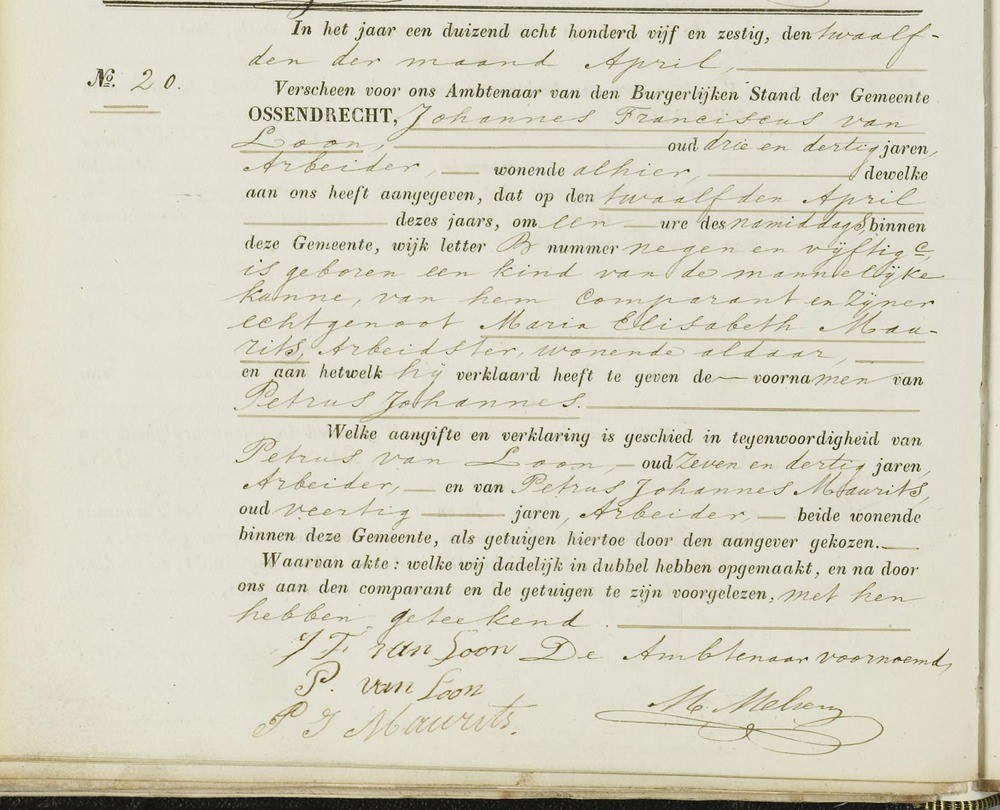 In het jaar een duizend acht honderd vijf en zestig, den twaalf-
den der maand April,
No. 20.
Verscheen voor ons Ambtenaar van den Burgerlijken Stand der Gemeente
OSSENDRECHT, Johannes Franciscus van
Loon, oud drie en dertig jaren,
Arbeider, wonende alhier, dewelke
aan ons heeft aangegeven, dat op den twaalfden April
dezes jaars, om een ure des namiddags, binnen
deze Gemeente, wijk letter B nummer negen en vijftig c,
is geboren een kind van de mannelijke
kunne, van hem Comparant en Zijner
echtgenoot Maria Elisabeth Mau-
rits, Arbeidster, wonende aldaar,
en aan hetwelk hij verklaard heeft te geven de voornamen van
Petrus Johannes.
Welke aangifte en verklaring is geschied in tegenwoordigheid van
Petrus van Loon, oud Zeven en dertig jaren,
Arbeider, en van Petrus Johannes Maurits,
oud veertig jaren, Arbeider, beide wonende
binnen deze Gemeente, als getuigen hiertoe door den aangever gekozen.
Waarvan akte: welke wij dadelijk in dubbel hebben opgemaakt, en na door
ons aan den comparant en de getuigen te zijn voorgelezen, met hen
hebben geteekend.
J F van Loon De Ambtenaar voornoemd,
P. van Loon
M. Melsen
P J Maurits.